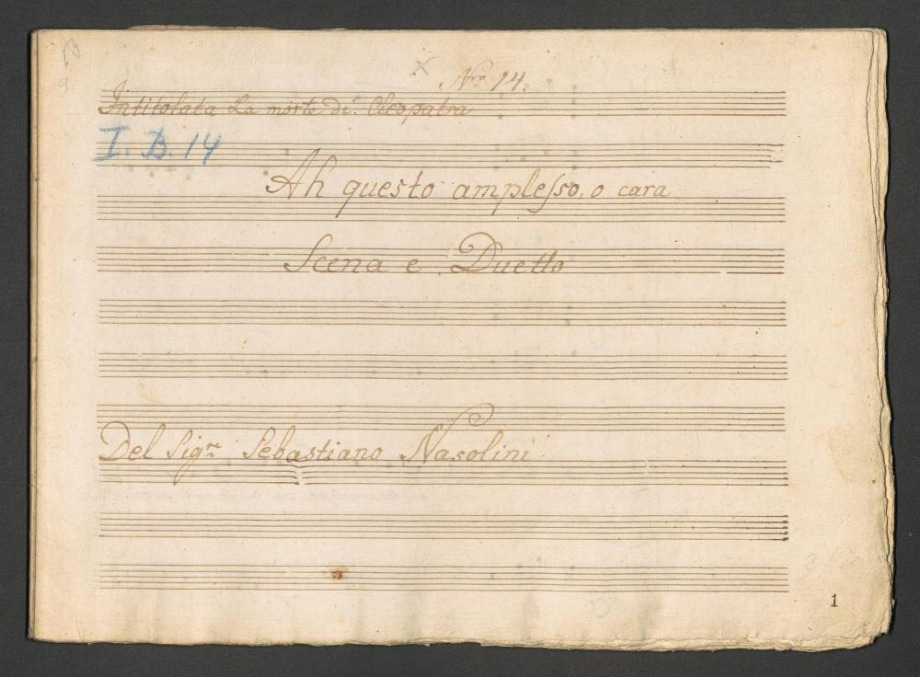 Nro 14.
Intitolata La morte di Cleopatra
I. B. 14
Ah questo amplesso, o cara
Scena e Duetto
Del Sigre Sebastiano Nasolini
1